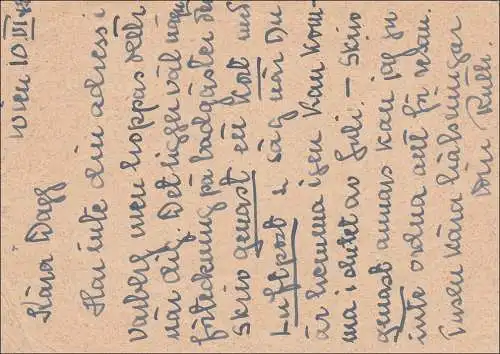 Wien 10 III
Kära Dagg
Har inte din adress i
Varberg men hoppas detta
når dig. Det ligger väl någon
förteckning på badgäster der
Skriv genast ett kort med
Luftpost & säg när Du
är hemma igen Kan kom-
ma i slutet av Juli. – Skriv
genast annars kan jag ju
inte ordna allt för resan.
Tusen kära hälsningar
Din Ruth.